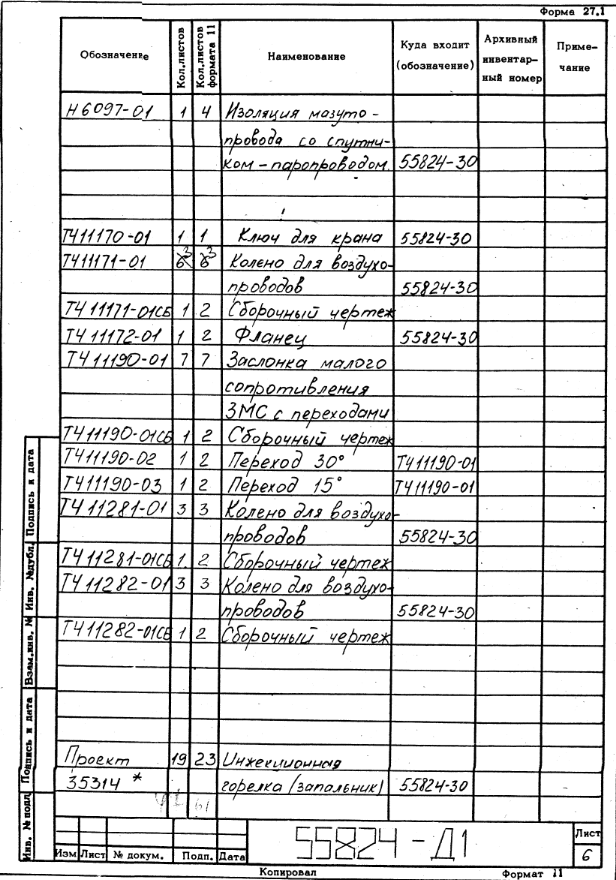 Форма 27.1
Обозначение Кол.листов Кол.листов формата 11 Наименование Куда входит (обозначение) Архивный инвентарный номер Примечание
Н6097-01 1 4 Изоляция мазуто-
провода со спутни-
ком-паропроводом. 55824-30
ТЧ11170-01 1 1 Ключ для крана 55824-30
ТЧ11171-01 3 3 Колено для воздухо-
проводов 55824-30
ТЧ11171-01СБ 1 2 Сборочный чертеж
ТЧ11172-01 1 2 Фланец 55824-30
ТЧ11190-01 7 7 Заслонка малого
сопротивления
ЗМС с переходами
ТЧ11190-01СБ 1 2 Сборочный чертеж
ТЧ11190-02 1 2 Переход 30° ТЧ11190-01
ТЧ11190-03 1 2 Переход 15° ТЧ11190-01
ТЧ11281-01 3 3 Колено для воздухо-
проводов 55824-30
ТЧ11281-01СБ 1 2 Сборочный чертеж
ТЧ11282-01 3 3 Колено для воздухо-
проводов 55824-30
ТЧ11282-01СБ 1 2 Сборочный чертеж
Проект 19 23 Инжекционная
35314 * горелка (запальник) 55824-30
61
Инв. № подл.
Подпись и дата
Взам.инв. №
Инв. №дубл.
Подпись и дата
55824-Д1
Лист
6
Изм Лист № докум. Подп. Дата
Копировал Формат 11